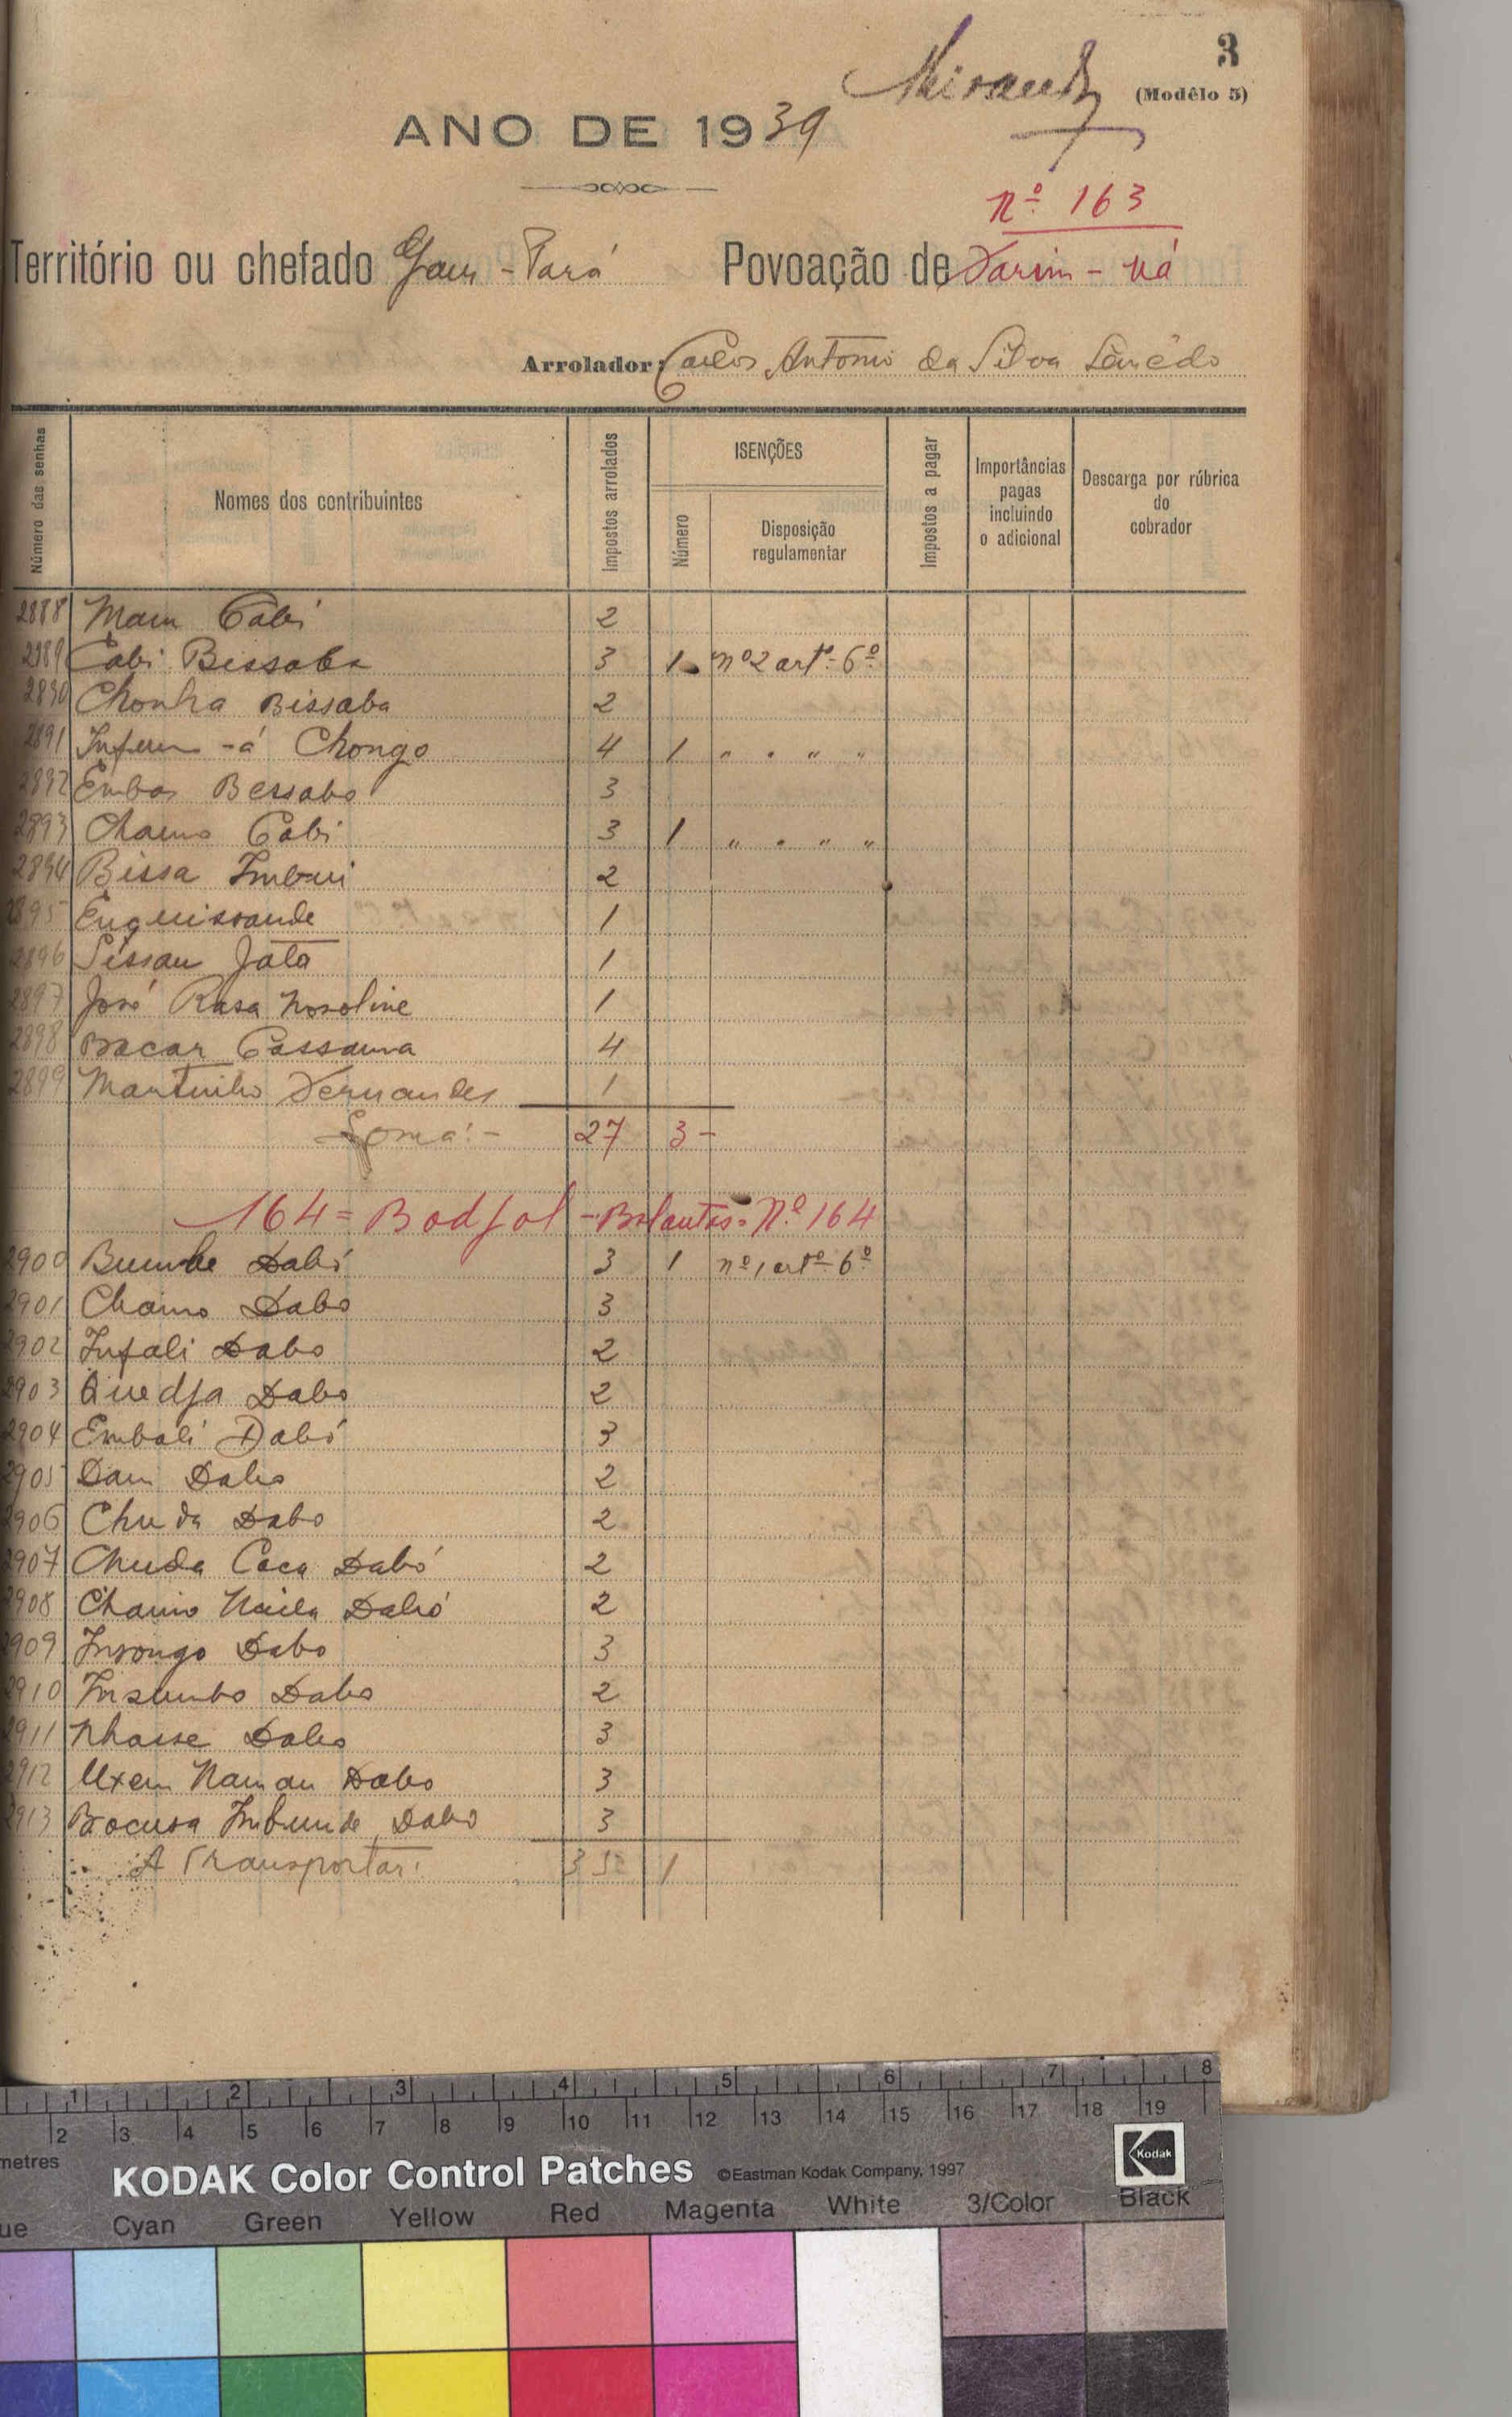 3
(Modêlo 5)
ANO DE 1939
Nº 163
Território ou chefado Povoação de
Arrolador: Carlos Antonio da Silva
Número das senhas
Nomes dos contribuintes
Impostos arrolados
ISENÇÕES
Número
Disposição regulamentar
Impostos a pagar
Importâncias pagas incluindo o adicional
Descarga por rúbrica do cobrador
2888 Mam Cabi 2
2889 Cabi Bissaba 3 1 nº 2 artº 6º
2890 Chonha Bissaba 2
2891 -á Chongo 4 1 " " " "
2892 Embas Bessabo 3
2893 Chamo Cabi 3 1 " " " "
2894 Bissa 2
2895 Enquissande 1
2896 Sissau Jata 1
2897 José Rasa 1
2898 Bacar Cassama 4
2899 Martinho Fernandes 1
Soma:- 27 3-
164 = Bodjol - Balantas = Nº 164
2900 Bumbe Dabó 3 1 nº 1 artº 6º
2901 Chamo Dabo 3
2902 Infali Dabo 2
2903 Quedja Dabo 2
2904 Embali Dabó 3
2905 Dam Dabo 2
2906 Chuda Dabo 2
2907 Chuda Caca Dabó 2
2908 Chamo Naila Dabó 2
2909 Insongo Dabo 3
2910 Insumbo Dabo 2
2911 Nhasse Dabo 3
2912 Uxem Naman Dabo 3
2913 Bocusa Imbunde Dabo 3
A Transportar: 35 1
1 2 3 4 5 6 7 8
2 3 4 5 6 7 8 9 10 11 12 13 14 15 16 17 18 19
metres
KODAK Color Control Patches ©Eastman Kodak Company, 1997 Kodak
ue Cyan Green Yellow Red Magenta White 3/Color Black